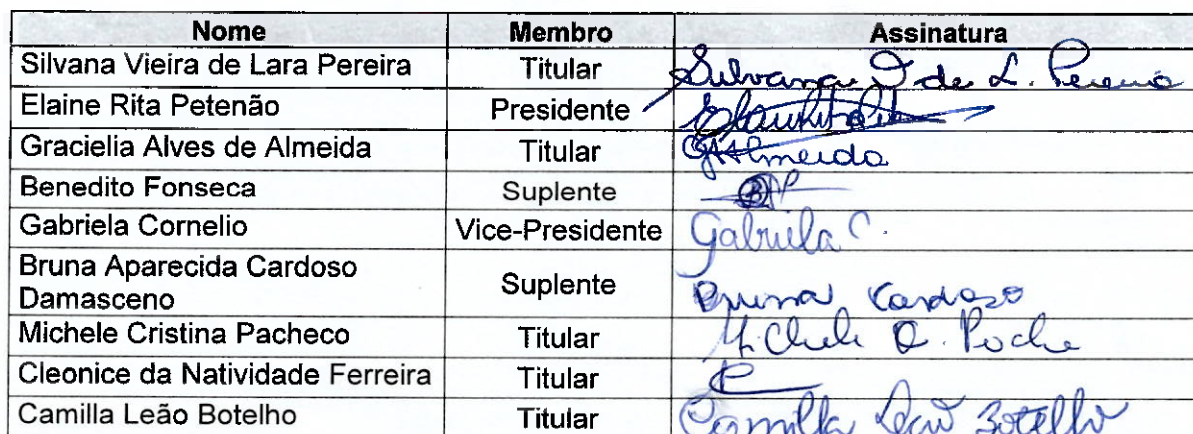 Nome Membro Assinatura
Silvana Vieira de Lara Pereira Titular Silvana V de L. Pereira
Elaine Rita Petenão Presidente
Gracielia Alves de Almeida Titular GAAlmeida
Benedito Fonseca Suplente
Gabriela Cornelio Vice-Presidente Gabriela C.
Bruna Aparecida Cardoso
Damasceno Suplente Bruna Cardoso
Michele Cristina Pacheco Titular
Cleonice da Natividade Ferreira Titular
Camilla Leão Botelho Titular Camilla Leão Botelho